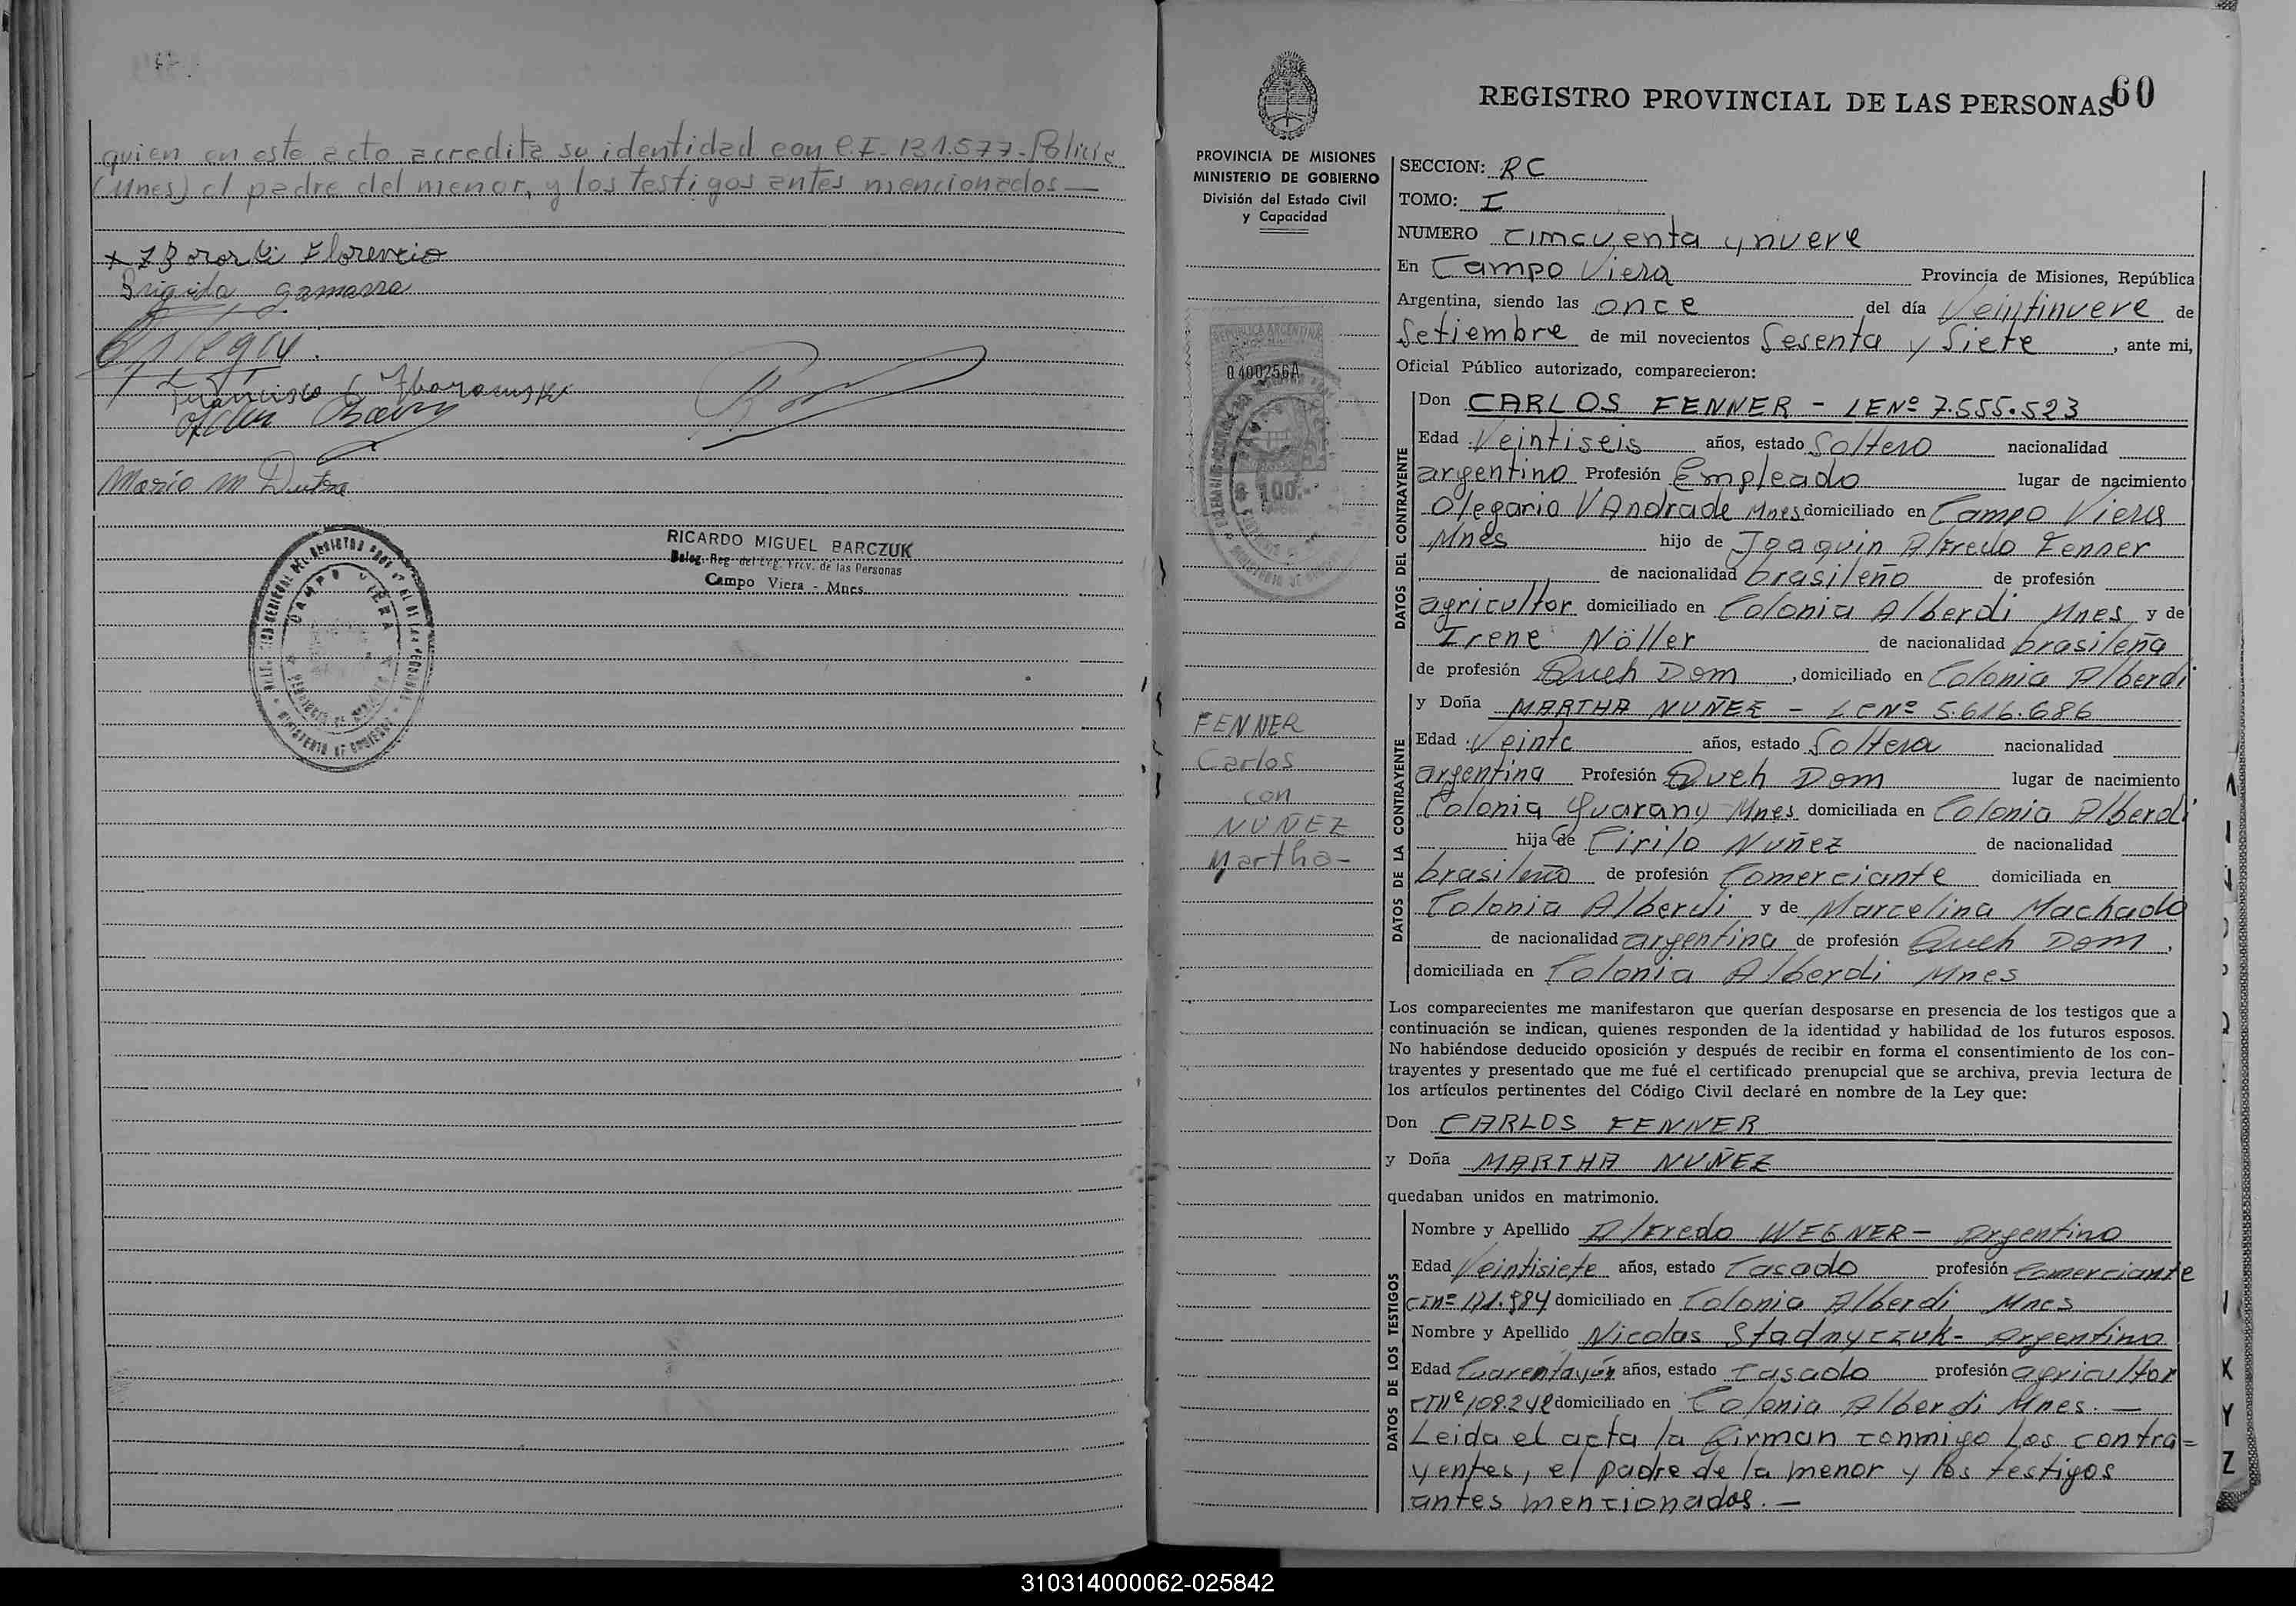 quien en este acto acredita su identidad con C.I. 131.577-Policia
(Mnes) el padre del menor, y los testigos antes mencionados—
Florencio
Brigida gamarra
Francisco
Mario M Dutra
RICARDO MIGUEL BARCZUK
Deleg. Reg. del Reg. Prov. de las Personas
Campo Viera - Mnes.
CAMPO VIERA
60
REGISTRO PROVINCIAL DE LAS PERSONAS
PROVINCIA DE MISIONES
MINISTERIO DE GOBIERNO
División del Estado Civil
y Capacidad
REPUBLICA ARGENTINA
0400256A
$ 100.-
FENNER
Carlos
con
NUÑEZ
Martha-
SECCION: RC
TOMO: I
NUMERO cimcuenta y nueve
En Campo Viera Provincia de Misiones, República
Argentina, siendo las once del día Veintinueve de
Setiembre de mil novecientos Sesenta y Siete, ante mi,
Oficial Público autorizado, comparecieron:
DATOS DEL CONTRAYENTE
Don CARLOS FENNER - LENº 7.555.523
Edad Veintiseis años, estado Soltero nacionalidad
argentino Profesión Empleado lugar de nacimiento
Olegario V Andrade Mnes domiciliado en Campo Viera
Mnes hijo de Joaquin Alfredo Fenner
de nacionalidad brasileño de profesión
agricultor domiciliado en Colonia Alberdi Mnes y de
Irene Nöller de nacionalidad brasileña
de profesión Queh Dom, domiciliado en Colonia Alberdi
DATOS DE LA CONTRAYENTE
y Doña MARTHA NUÑEZ - LCNº 5.616.686
Edad Veinte años, estado Soltera nacionalidad
argentina Profesión Queh Dom lugar de nacimiento
Colonia Guarany Mnes domiciliada en Colonia Alberdi
hija de Cirilo Nuñez de nacionalidad
brasileño de profesión Comerciante domiciliada en
Colonia Alberdi y de Marcelina Machado
de nacionalidad argentina de profesión Queh Dom,
domiciliada en Colonia Alberdi Mnes
Los comparecientes me manifestaron que querían desposarse en presencia de los testigos que a
continuación se indican, quienes responden de la identidad y habilidad de los futuros esposos.
No habiéndose deducido oposición y después de recibir en forma el consentimiento de los con-
trayentes y presentado que me fué el certificado prenupcial que se archiva, previa lectura de
los artículos pertinentes del Código Civil declaré en nombre de la Ley que:
Don CARLOS FENNER
y Doña MARTHA NUÑEZ
quedaban unidos en matrimonio.
DATOS DE LOS TESTIGOS
Nombre y Apellido Alfredo WEGNER - Argentino
Edad Veintisiete años, estado Casado profesión Comerciante
CINº 171.984 domiciliado en Colonia Alberdi Mnes
Nombre y Apellido Nicolas Stadnyczuk- Argentino
Edad Cuarentayún años, estado Casado profesión agricultor
CINº 108.242 domiciliado en Colonia Alberdi Mnes. —
Leida el acta la firman conmigo los contra=
yentes, el padre de la menor y los testigos
antes mencionados. —
X
Y
Z
310314000062-025842